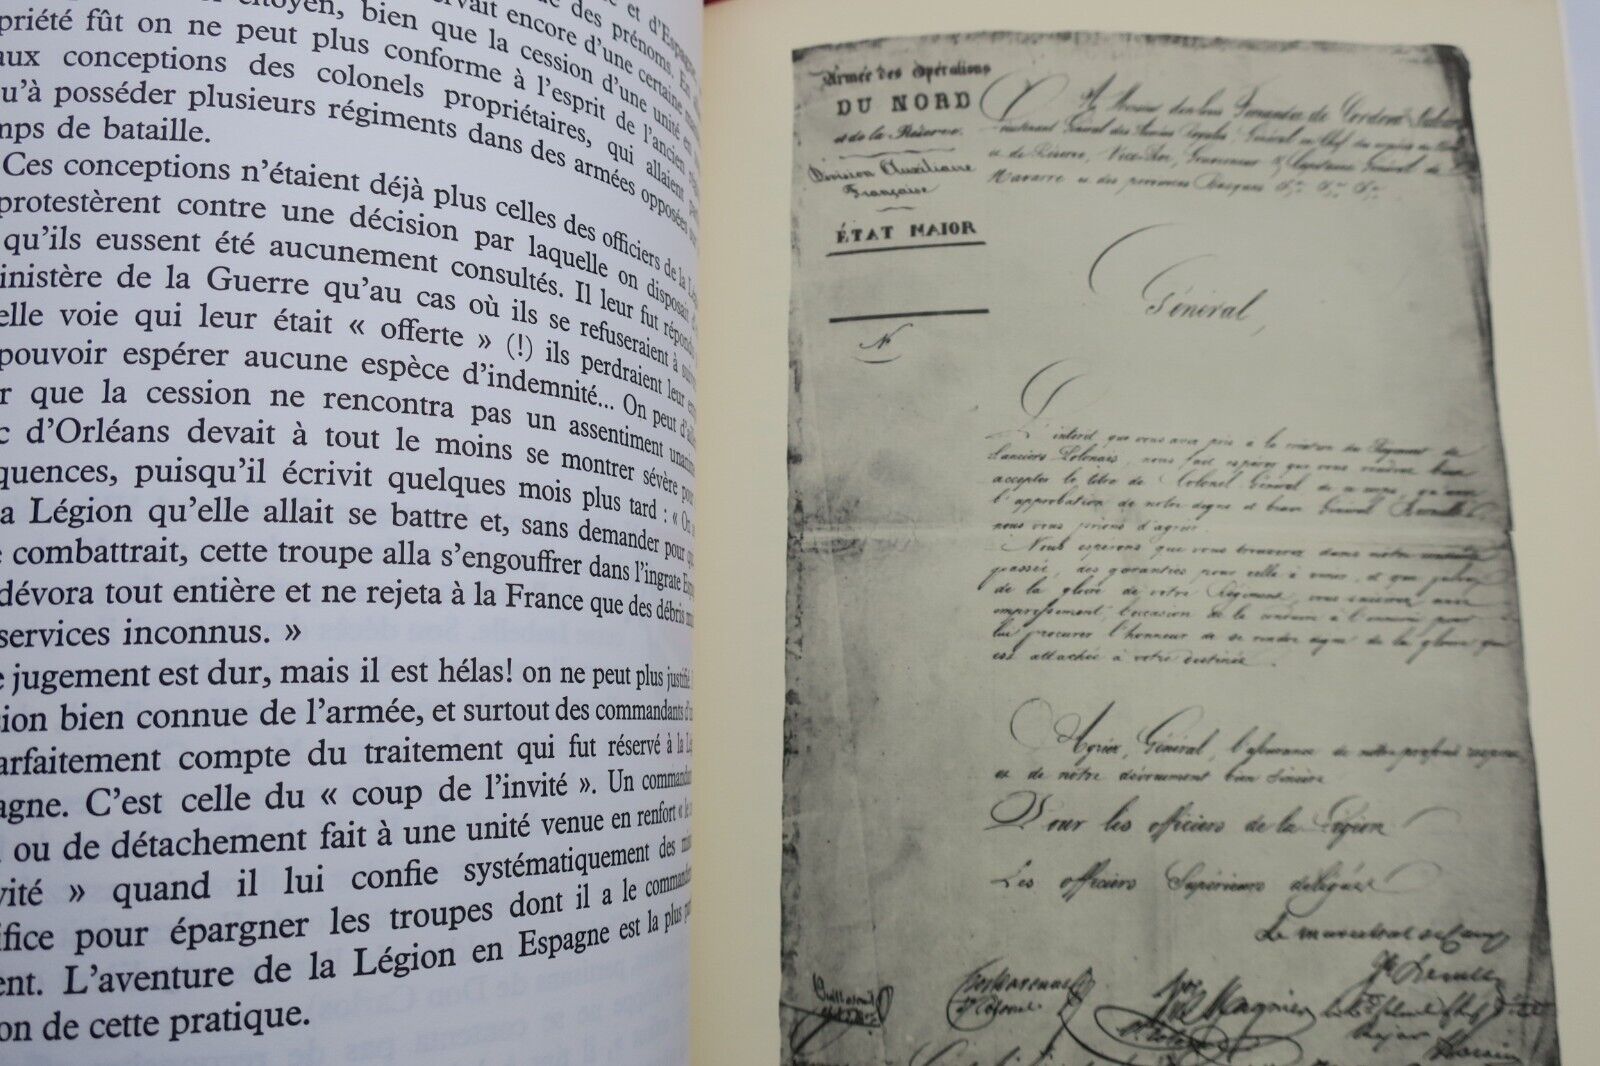 et d'Espagne
citoyen, bien que la cession d'une unité, en
priété fût on ne peut plus conforme à l'esprit de l'ancien
aux conceptions des colonels propriétaires, qui allaient
u'à posséder plusieurs régiments dans des armées opposées sur
mps de bataille.
Ces conceptions n'étaient déjà plus celles des officiers de la
protestèrent contre une décision par laquelle on disposait
qu'ils eussent été aucunement consultés. Il leur fut répondu
inistère de la Guerre qu'au cas où ils se refuseraient à
elle voie qui leur était « offerte » (!) ils perdraient leur
pouvoir espérer aucune espèce d'indemnité... On peut
r que la cession ne rencontra pas un assentiment
c d'Orléans devait à tout le moins se montrer sévère
quences, puisqu'il écrivit quelques mois plus tard : « On
a Légion qu'elle allait se battre et, sans demander pour
combattrait, cette troupe alla s'engouffrer dans l'ingrate
dévora tout entière et ne rejeta à la France que des débris
services inconnus. »
jugement est dur, mais il est hélas! on ne peut plus justifié
ion bien connue de l'armée, et surtout des commandants
arfaitement compte du traitement qui fut réservé à la
agne. C'est celle du « coup de l'invité ». Un
ou de détachement fait à une unité venue en renfort «
vité » quand il lui confie systématiquement des
ifice pour épargner les troupes dont il a le
ent. L'aventure de la Légion en Espagne est la plus
on de cette pratique.
Armée des Opérations
DU NORD
et de la Réserve.
Division Auxiliaire
Française
ÉTAT MAIOR
N
A Monsieur don Louis Fernandez de Cordova
Lieutenant Général des Armées Royales, Général en Chef des
et de Réserve, Vice-Roi, Gouverneur & Capitaine Général de
Navarre et des provinces Basques
Général,
L'intérêt que vous avez pris à la création du Régiment de
Lanciers Polonais, nous fait espérer que vous voudrez bien
accepter le titre de Colonel Général de ce corps, qu'avec
l'approbation de notre digne et brave Général Bernelle
nous vous prions d'agréer.
Nous espérons que vous trouverez dans notre conduite
passée, des garanties pour celle à venir, et que
de la gloire de votre Régiment, vous saisirez avec
empressement, l'occasion de le conduire à l'ennemi pour
lui procurer l'honneur de se rendre digne de la gloire qui
est attachée à votre destinée.
Agréez, Général, l'assurance de notre profond respect
et de notre dévouement bien sincère
Pour les officiers de la Légion
Les officiers Supérieurs délégués
Le maréchal de Camp
Bernelle
Magnier